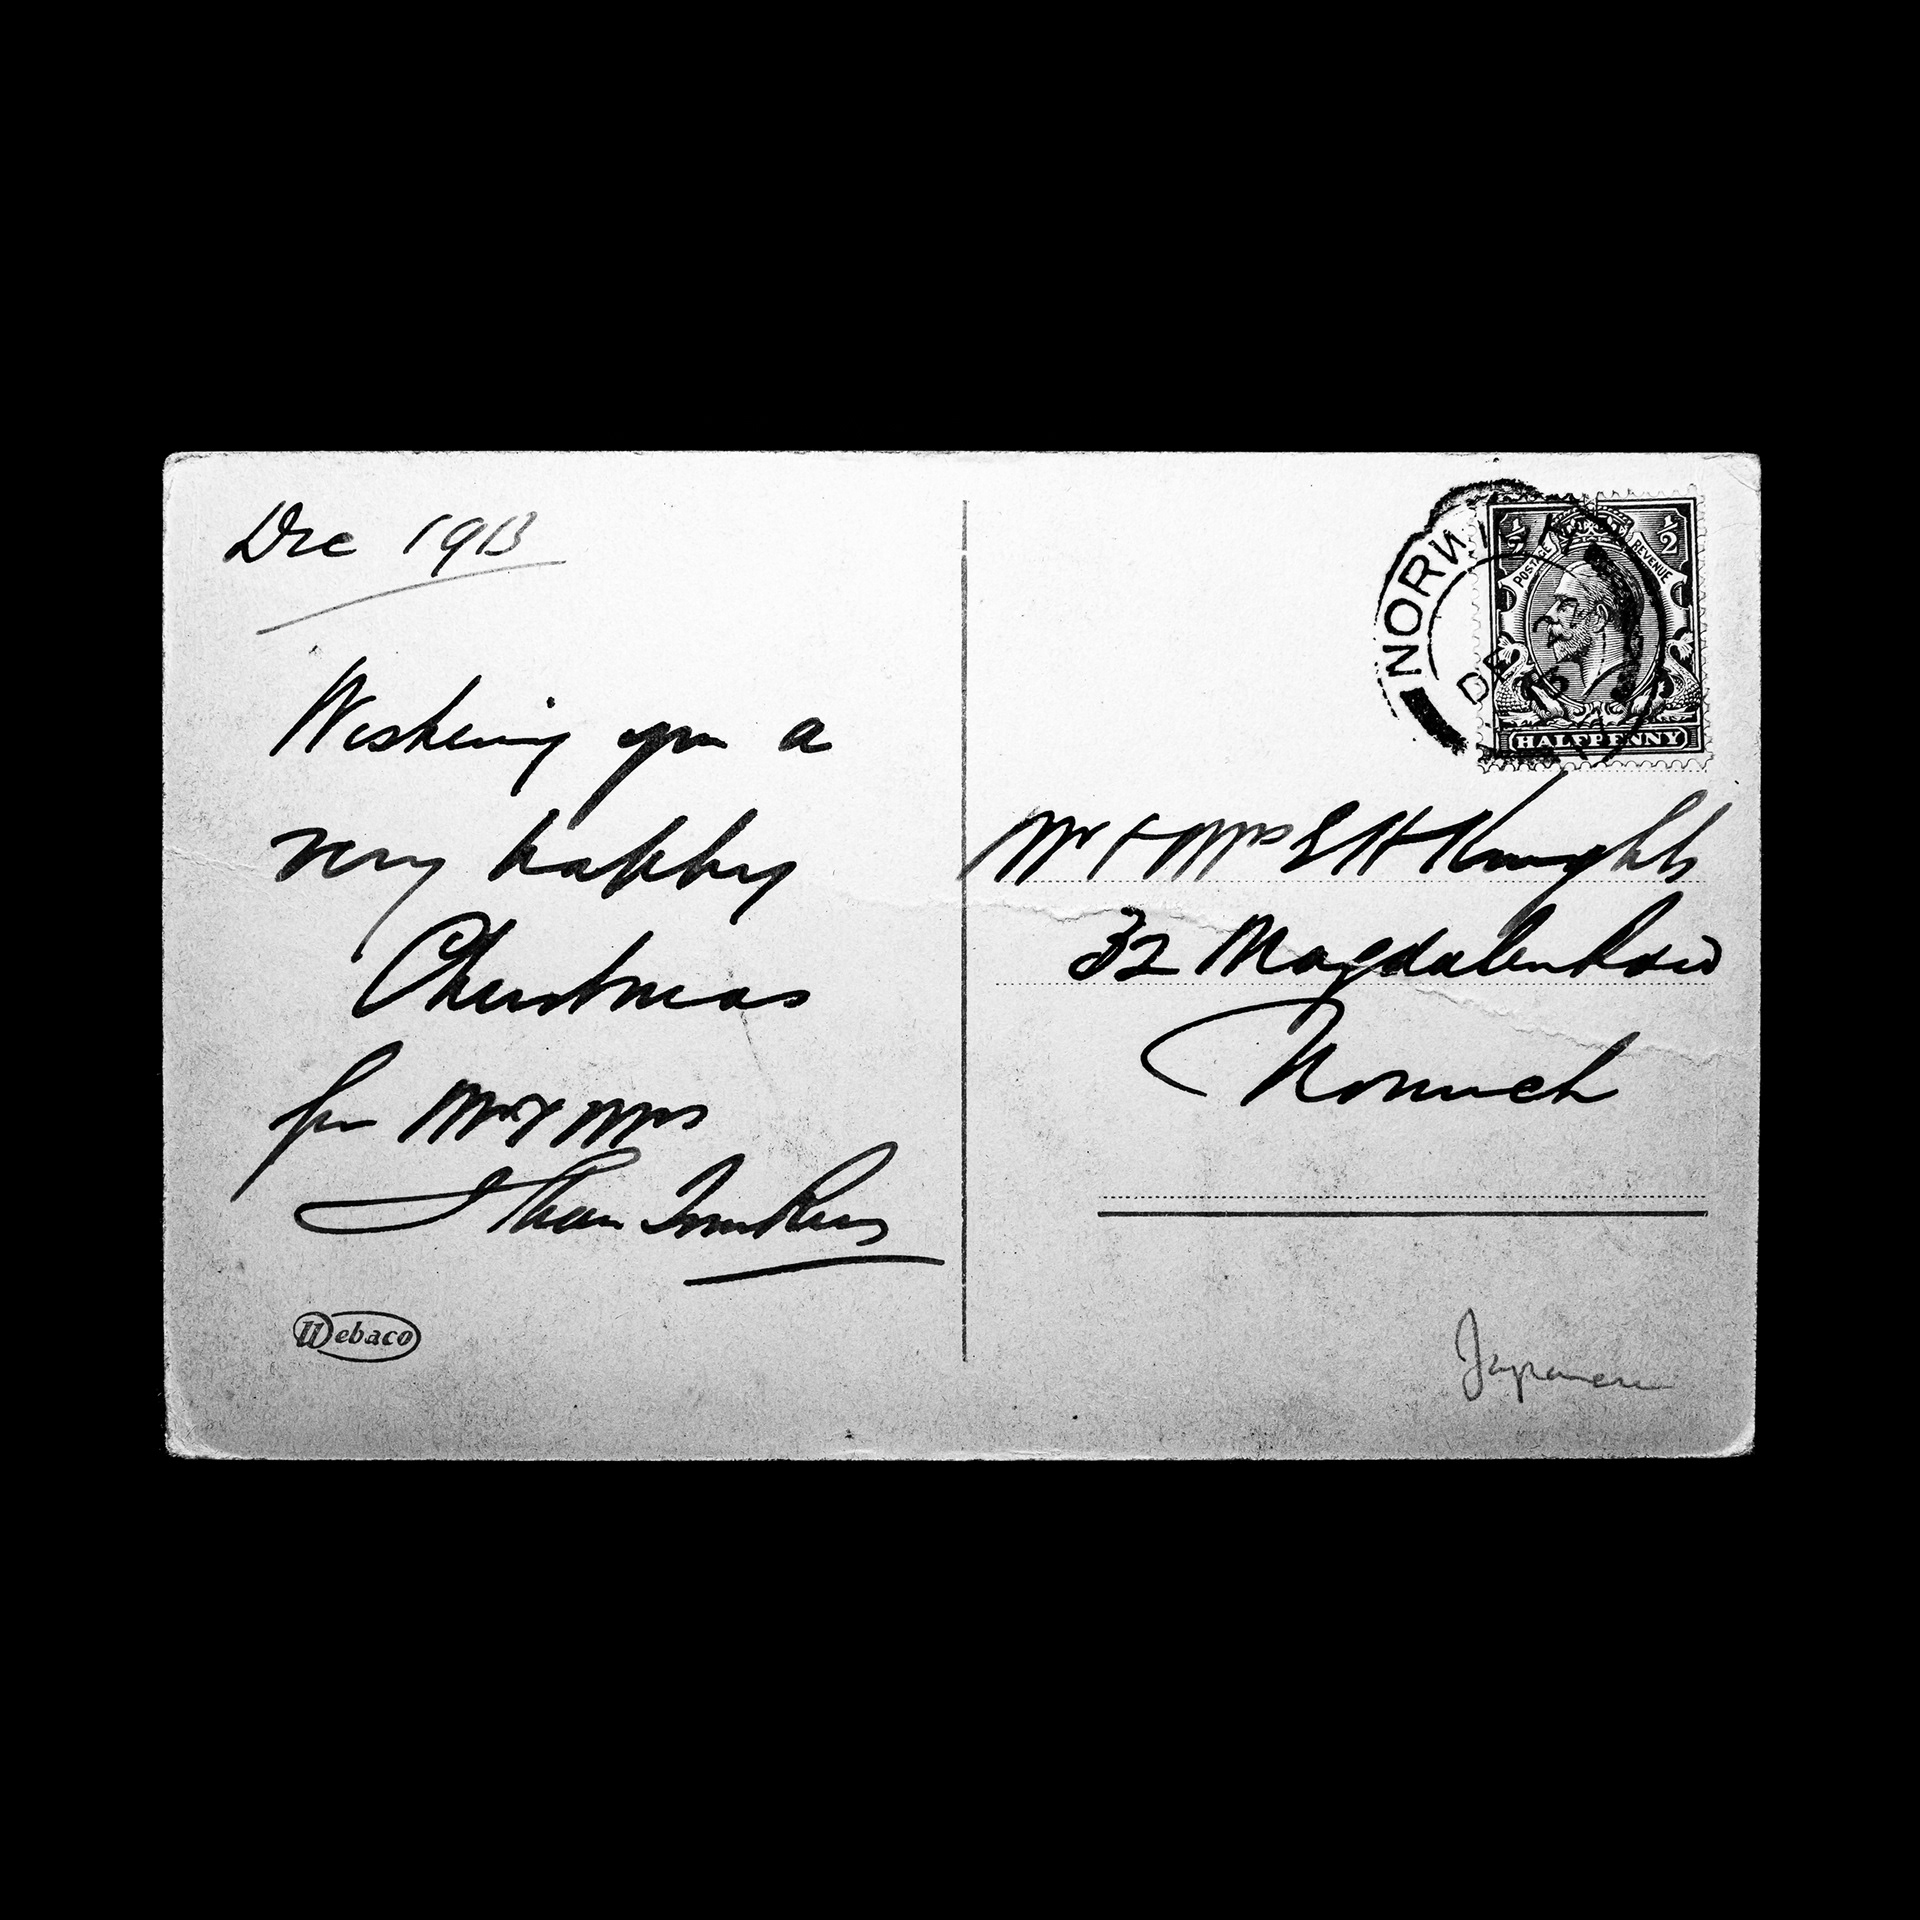 Dec 1913
Wishing you a
very happy
Christmas
from Mr & Mrs
Webaco
NORWICH
DE
13
½ ½
POSTAGE REVENUE
HALFPENNY
Mr & Mrs E H Knights
32 Magdalen Road
Norwich
Japanese